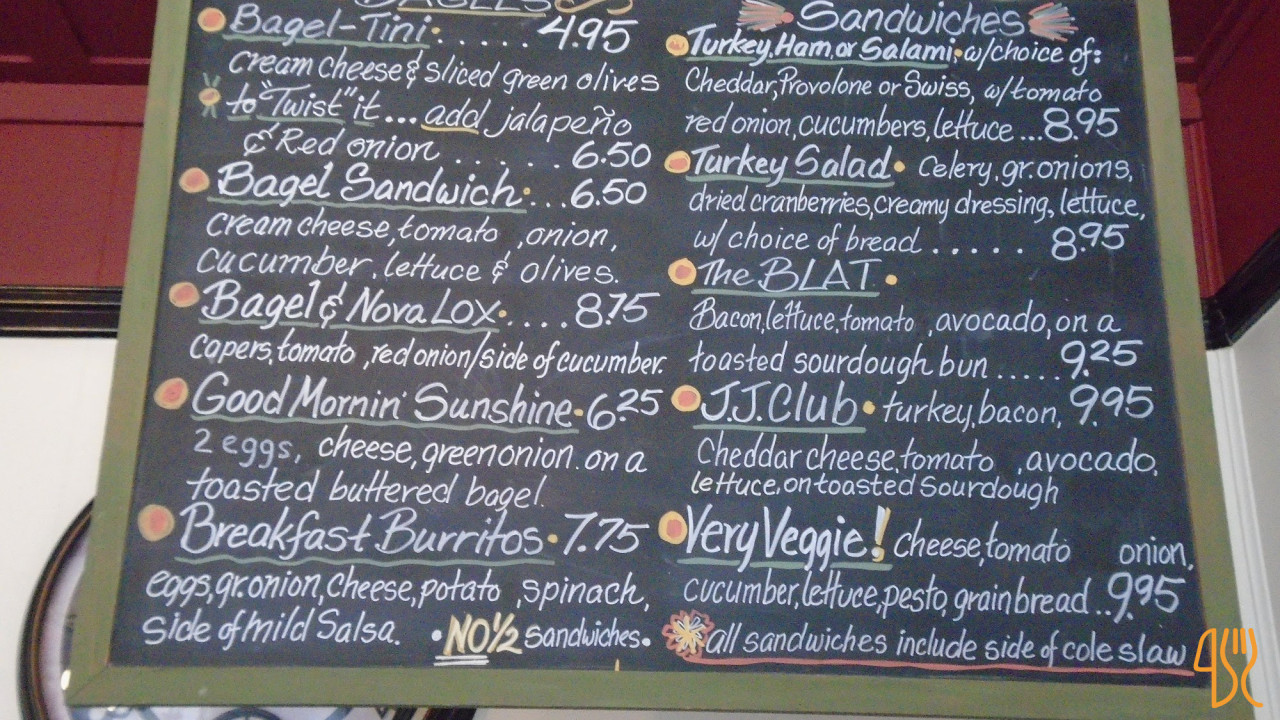 BAGELS
Bagel-Tini . . . . . . 4.95
cream cheese & sliced green olives
to "Twist" it... add jalapeño
& Red onion . . . . . . 6.50
Bagel Sandwich . . . . 6.50
cream cheese, tomato , onion,
cucumber, lettuce & olives.
Bagel & Nova Lox . . . . . 8.75
capers, tomato , red onion/side of cucumber.
Good Mornin' Sunshine • 6.25
2 eggs, cheese, green onion. on a
toasted buttered bagel.
Breakfast Burritos • 7.75
eggs, gr. onion, cheese, potato , spinach,
side of mild Salsa.
• NO ½ sandwiches •
Sandwiches
Turkey, Ham, or Salami • w/choice of:
Cheddar, Provolone or Swiss, w/tomato
red onion, cucumbers, lettuce ... 8.95
Turkey Salad • Celery, gr. onions,
dried cranberries, creamy dressing, lettuce,
w/ choice of bread . . . . . 8.95
The BLAT •
Bacon, lettuce, tomato , avocado, on a
toasted sourdough bun ..... 9.25
J.J. Club • turkey, bacon, 9.95
Cheddar cheese, tomato , avocado,
lettuce, on toasted Sourdough
Very Veggie! cheese, tomato onion,
cucumber, lettuce, pesto, grain bread .. 9.95
all sandwiches include side of cole slaw